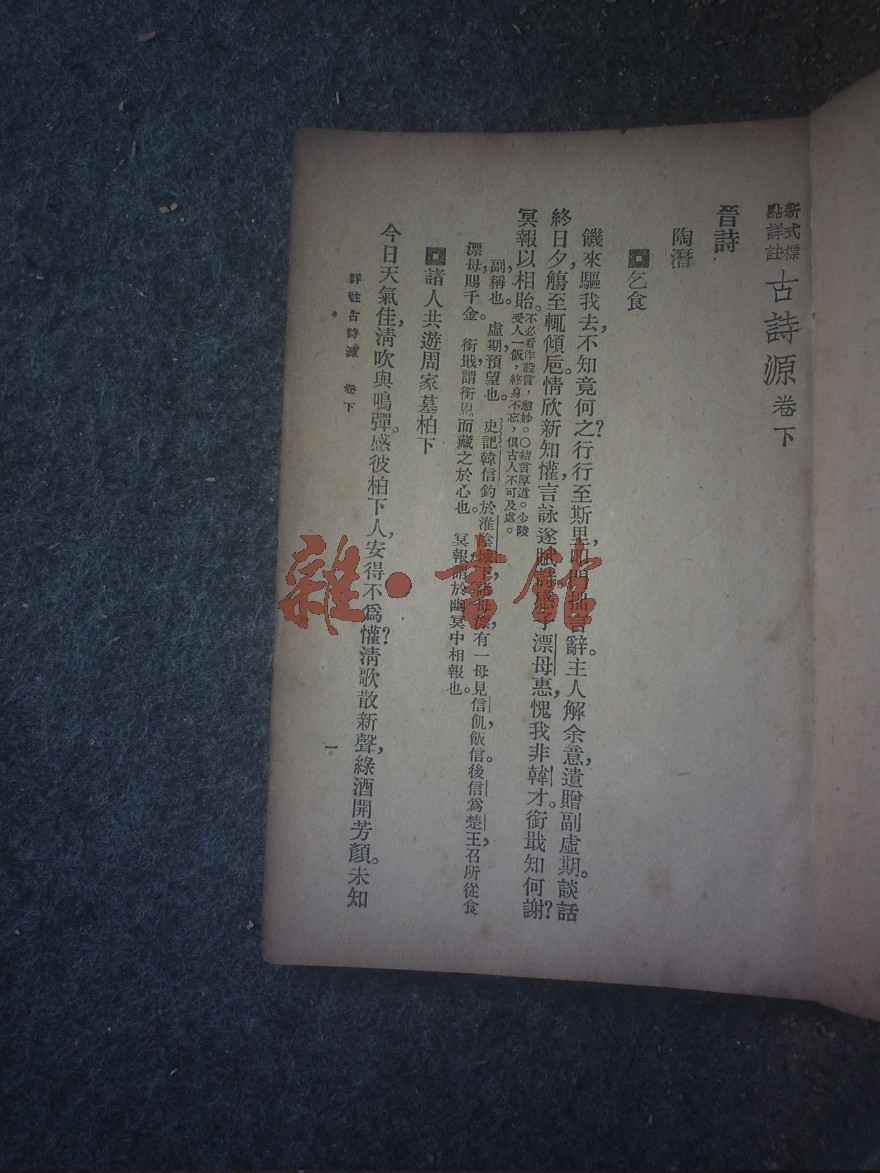 新式標點詳註 古詩源 卷下
晉詩
陶潛
乞食
饑來驅我去，不知竟何之？行行至斯里，叩門拙言辭。主人解余意，遺贈副虛期。談話
終日夕，觴至輒傾巵。情欣新知懽，言詠遂賦詩。感子漂母惠，愧我非韓才。銜戢知何謝？
冥報以相貽。不必看作設言，愈妙。〇結言厚道。少陵
受人一飯，終身不忘，俱古人不可及處。
副，稱也。虛期，預望也。史記韓信釣於淮陰城下，諸母漂，有一母見信飢，飯信。後信爲楚王，召所從食
漂母，賜千金。銜戢，謂銜恩而藏之於心也。冥報，謂於幽冥中相報也。
諸人共遊周家墓柏下
今日天氣佳，清吹與鳴彈。感彼柏下人，安得不爲懽？清歌散新聲，綠酒開芳顏。未知
詳註古詩源 卷下
一
雜·書館